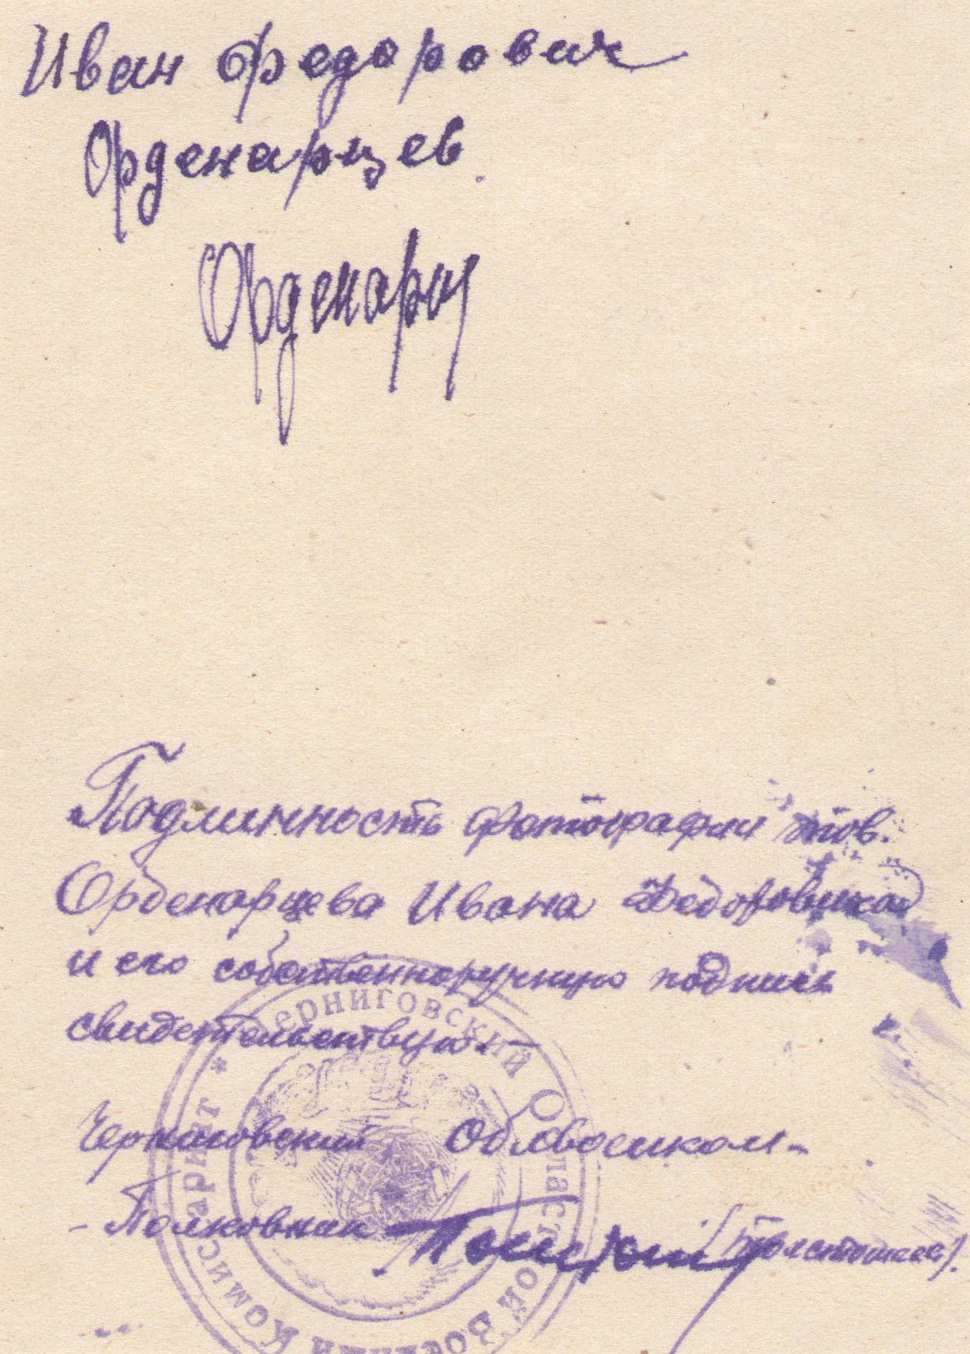 Иван Федорович
Орденарцев.
Орденарц
Подлинность фотографии тов.
Орденарцева Ивана Федоровича
и его собственноручную подпись
свидетельствую. —
Черниговский Облвоенком —
- Полковник
Черниговский Областной Военный Комиссариат *